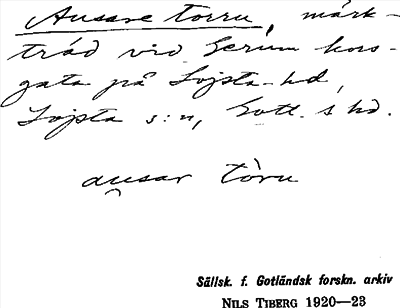 Ausare torru, märk-
träd vid Gerum kors-
gata på Lojsta-hd,
Lojsta s:n, Gotl. s hd.
au̯sar tòru
Sällsk. f. Gotländsk forskn. arkiv
NILS TIBERG 1920—23